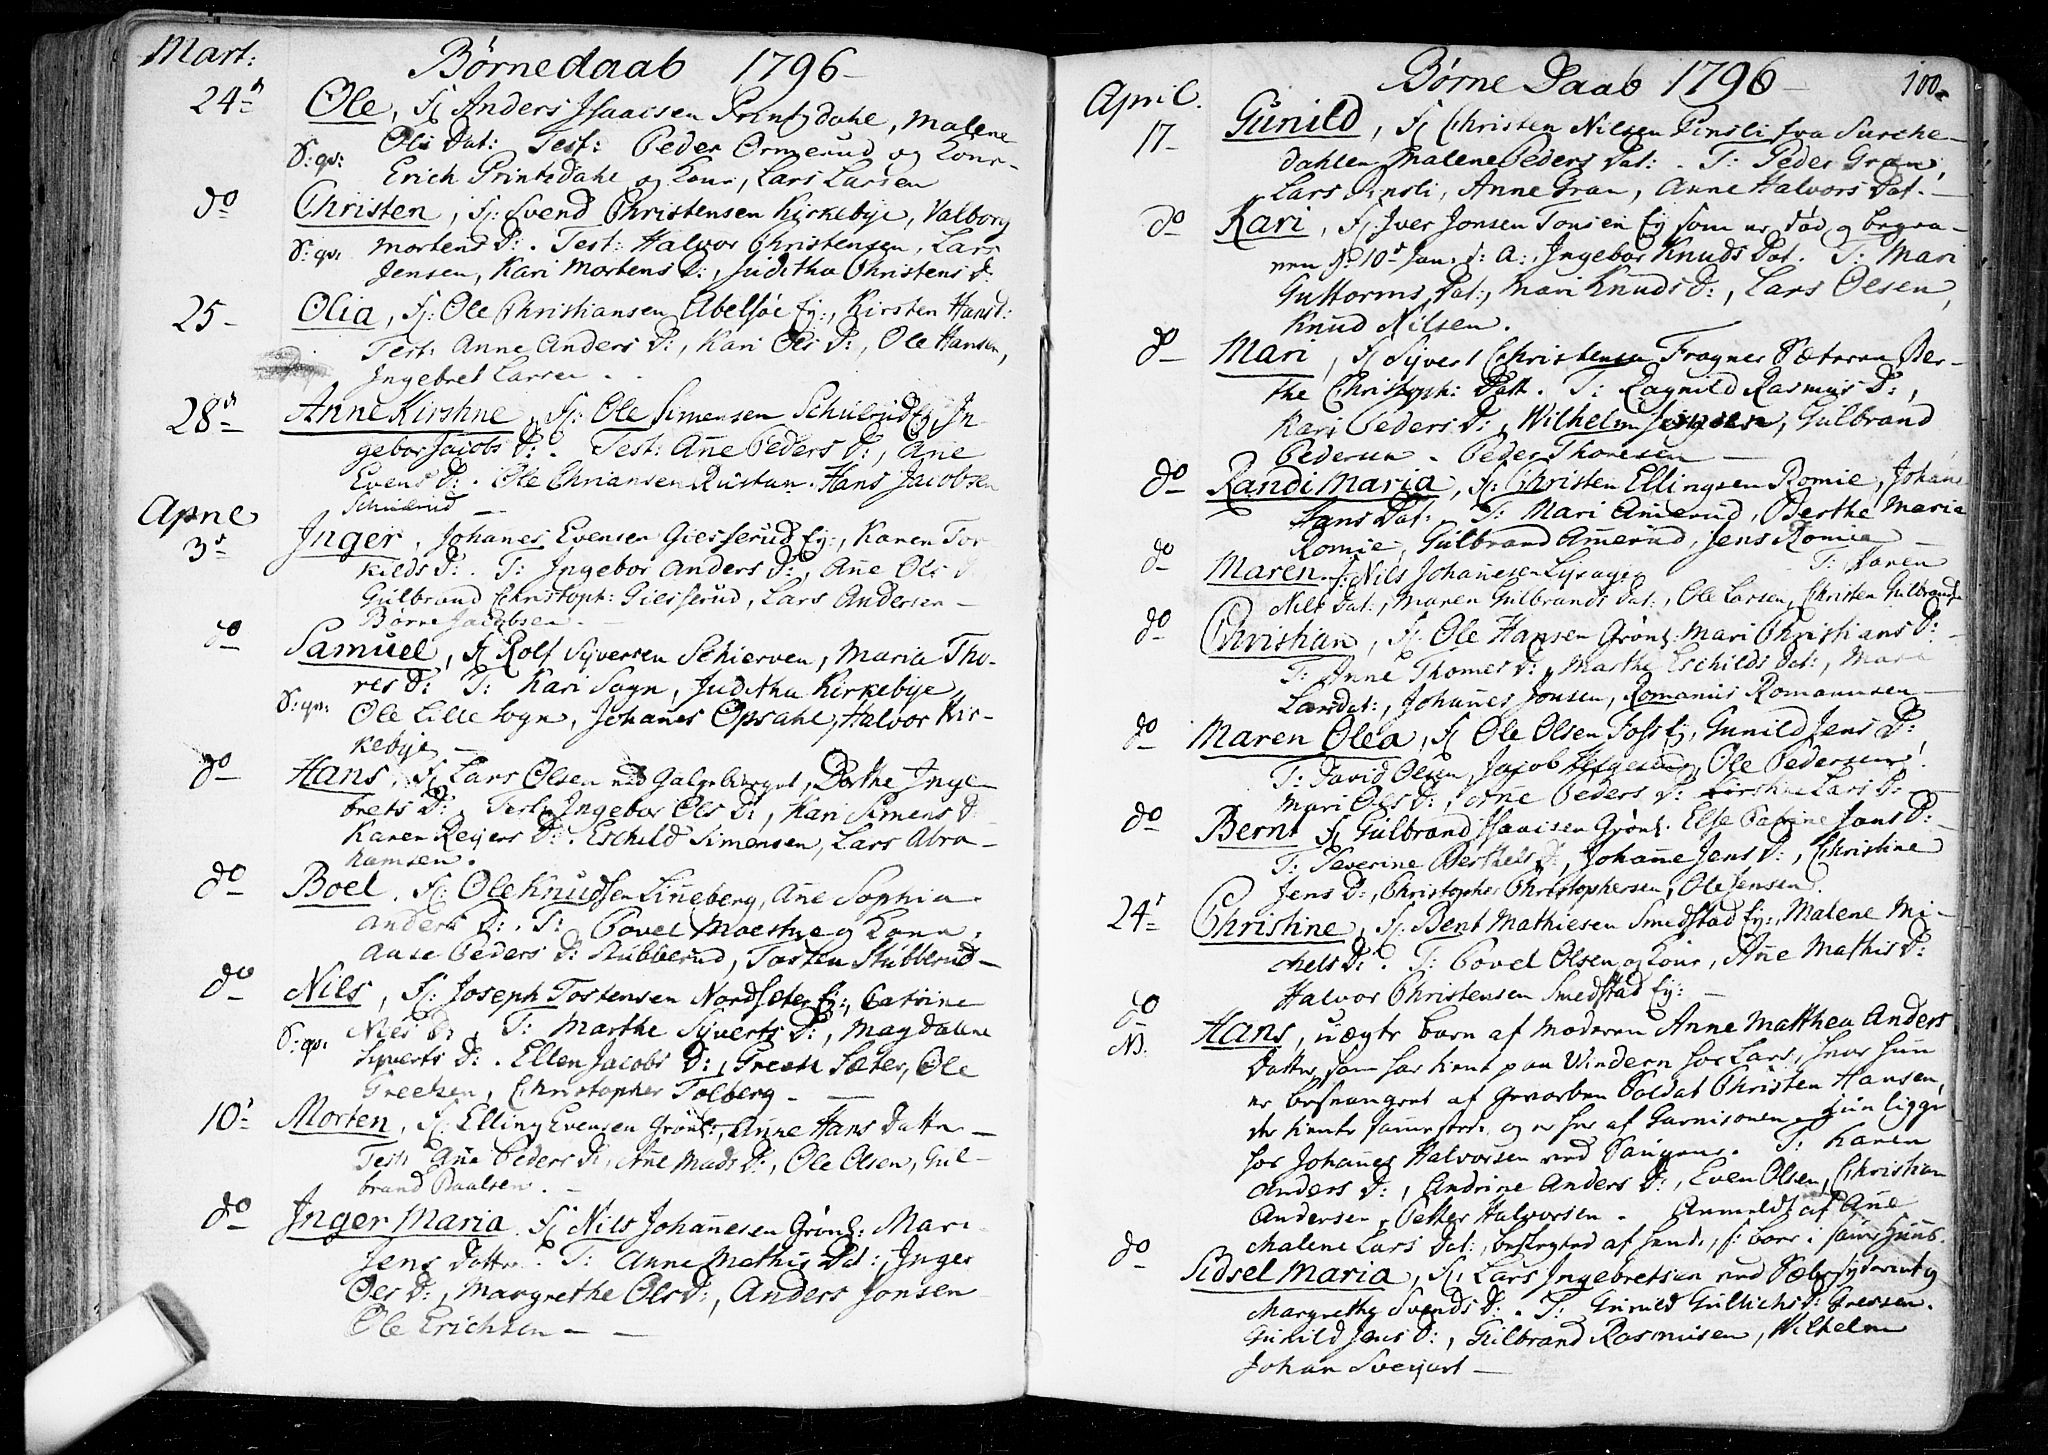 Mart:
Børnedaab 1796
24de Ole, F: Anders Isaacsen Printzdahl, Malene
Ols Dat: Test: Peder Ormerud og Kone
S: qv: Erich Printzdahl og Kone, Lars Larsen
do Christen, F: Svend Christensen Kirkebye, Valborg
S: qv. Mortens D: . Test: Halvor Christensen, Lars
Jensen, Kari Mortens D:, Juditha Christens D:
25 Olia, F: Ole Christiansen Abelsøe Ey:, Kirsten Hans D:
Test: Anne Anders D:, Kari Ols D:, Ole Hansen,
Ingebret Larsen.
28de Anne Kirstine, F: Ole Simensen Schulrud Ey, In-
gebor Jacobs D: . Test: Añe Peders D:, Añe
Evens D: . Ole Chriansen Rustan. Hans Jacobsen
Schulerud
Apríl
3de Inger, Johañes Evensen Giesserud Ey:, Karen Tor
kilds D: . T: Ingebor Anders D:, Añe Ols D
Gulbrand Christoph: Giesserud, Lars Andersen
Børre Jacobsen.
do Samuel, F: Rolf Syversen Schierven, Maria Tho-
res D: T: Kari Sogn, Juditha Kirkebye
S: qv: Ole Lille Sogn, Johañes Opsahl, Halvor Kir-
kebye
do Hans, F: Lars Olsen ved Galgeberget, Dorthe Inge
brets D: . Test: Ingebor Ols D:, Kari Simens D:
Karen Reyers D: . Eschild Simensen, Lars Abra-
hamsen.
do Boel, F: Ole Knudsen Liñeberg, Añe Sophia
Anders D: . T: Povel Moestue og Kone,
Aase Peders D: Stubberud, Tosten Stubberud
do Nils, F: Joseph Tostensen Nordseter Ey:, Catrine
S: qv. Nils D: . T: Marthe Syverts D:, Magdalene
Syverts D: . Ellen Jacobs D:, Greeth Sæter, Ole
Greetsen, Christopher Tolberg.
10de Morten, F: Elling Evensen Grønl:, Anne Hans Datter
Test: Añe Peders D:, Añe Mads D:, Ole Olsen, Gul-
brand Paalsen.
do Inger Maria, F: Nils Johañesen Grønl: Mari
Jens Datter. T: Anne Mathis Dat:, Inger
Ols D:, Margrethe Ols D:, Anders Jonsen
Ole Erichsen
Børne Daab 1796
100
April.
17 Gunild, F: Christen Nilsen Pinsli fra Surche-
dahlen Malene Peders Dat: . T: Peder Gran,
Lars Pinsli, Anne Gran, Anne Halvors Dat.
do Kari, F: Iver Jonsen Tonsen Ey som er død og begra-
ven d. 10de Jan. d: A:, Ingebor Knuds Dat. T: Mari
Guttorms Dat:, Mari Knuds D:, Lars Olsen,
Knud Nilsen.
do Mari, F: Syvert Christensen Frogner Sæteren Ber-
the Christoph: Datt. T: Ragnild Rasmus D:,
Kari Peders D:, Wilhelm Jensen, Gulbrand
Pedersen. Peder Thoresen
do Randi Maria, F: Christen Ellingsen Romie, Johañe
Hans Dat: . T: Mari Amerud, Berthe Maria
Romie, Gulbrand Amerud, Jens Romie
do Maren F: Nils Johañesen Lysager T: Karen
Nils Dat:, Maren Gulbrands Dat:, Ole Larsen, Christen Gulbrands
do Christian, F: Ole Hansen Grønl: Mari Christians D:
T: Anne Thomes D:, Marthe Eschilds Dat:, Mari
Larsdat:, Johañes Jonsen, Romanus Romanusen
do Maren Olea, F: Ole Olsen Foss Ey, Gunild Jens D:
T: David Olsen, Jacob Helgesen, Ole Pedersen,
Mari Ols D:, Añe Peders D: Kirstine Lars D:
do Bernt F: Gulbrand Isaacsen Grønl. Else Catrine Jans D:
T: Severine Berthels D:, Johañe Jens D:, Christine
Jens D:, Christopher Christophersen, Ole Jensen.
24de Christine, F: Bent Mathiesen Smedstad Ey:, Malene Mi-
chels D: . T: Povel Olsen og Kone, Añe Mathis D:
Halvor Christensen Smedstad Ey:
do Hans, uægte barn af Moderen Anne Matthea Anders
NB. Datter, som har tient paa Vindern hos Lars, hvor hun
er besvangret af Gevorben Soldat Christen Hansen,
der tiente sammesteds, og er her af Garnisonen. Hun ligger
hos Johañes Halvorsen ved Saugene. T: Karen
Anders D:, Andrine Anders D:, Even Olsen, Christian
Andersen, Petter Halvorsen. Anmeldt af Añe
Malene Lars Dat:, besvogred af hende, f: bor i samme Huus.
do Sidsel Maria, F: Lars Ingebretsen ved Sæbesyderiet og
Margrethe Svends D: . T: Gunild Gullichs D: Gressen.
Gunild Jens D:, Gulbrand Rasmusen, Wilhelm
Johan Sveijart